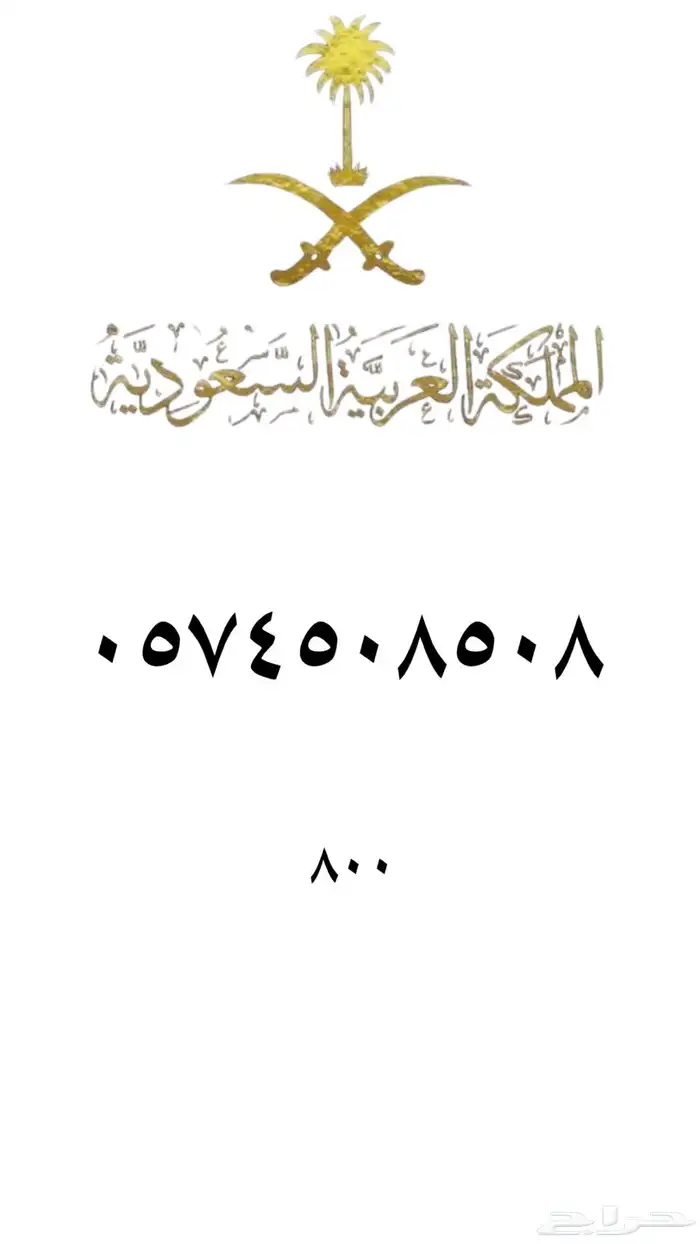 المملكة العربية السعودية
٠٥٧٤٥٠٨٥٠٨
٨٠٠
حراج